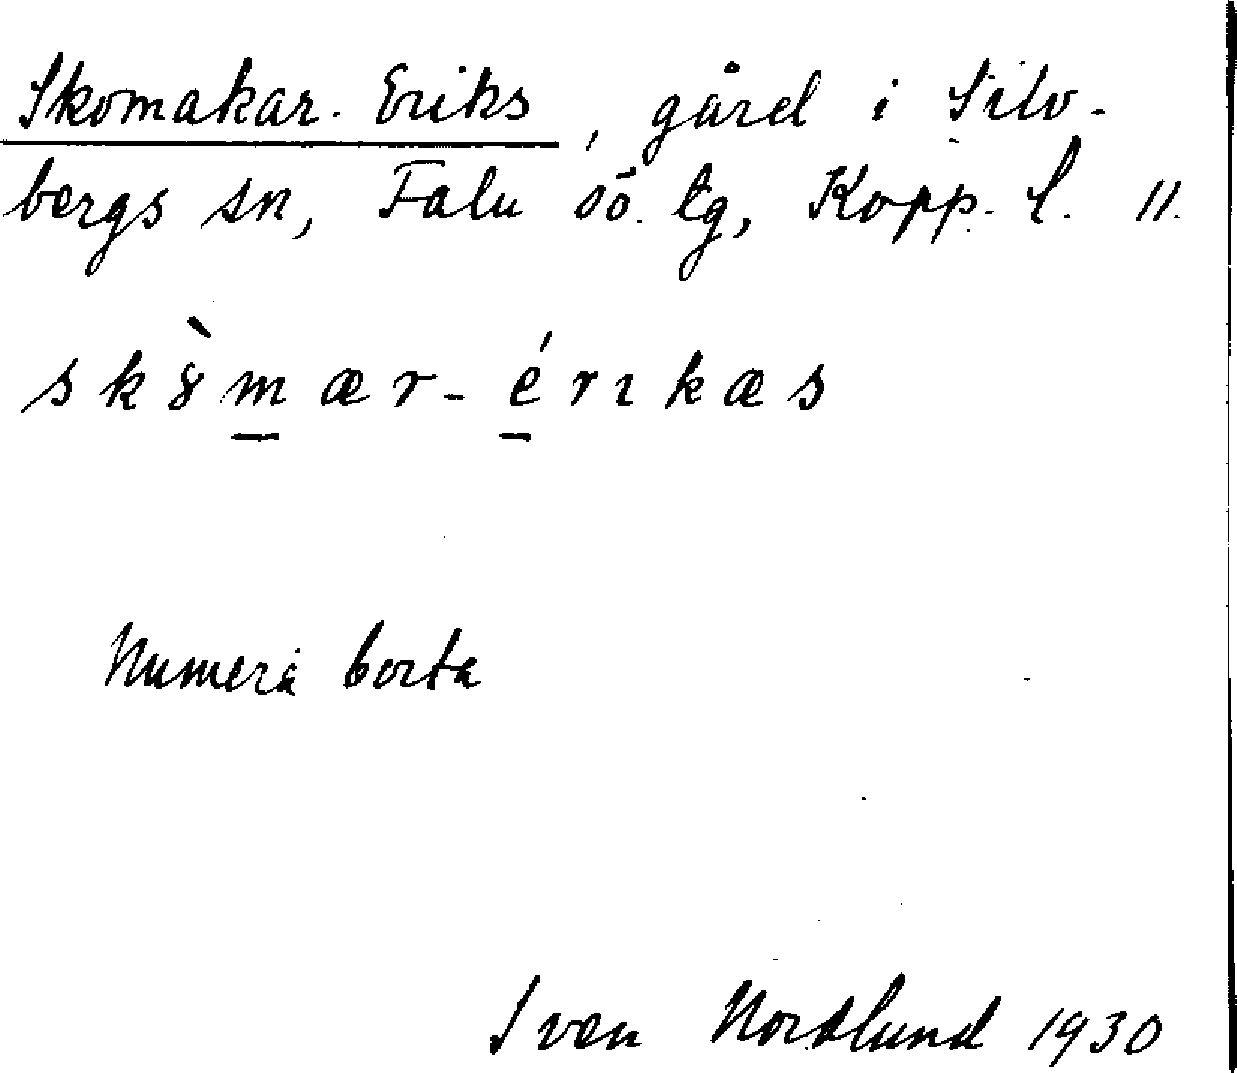 Skomakar-Eriks, gård i Silv-
bergs sn, Falu sö. tg, Kopp. l. 11.
skȣ̀mær-érıkæs
Numera borta
Sven Nordlund 1930